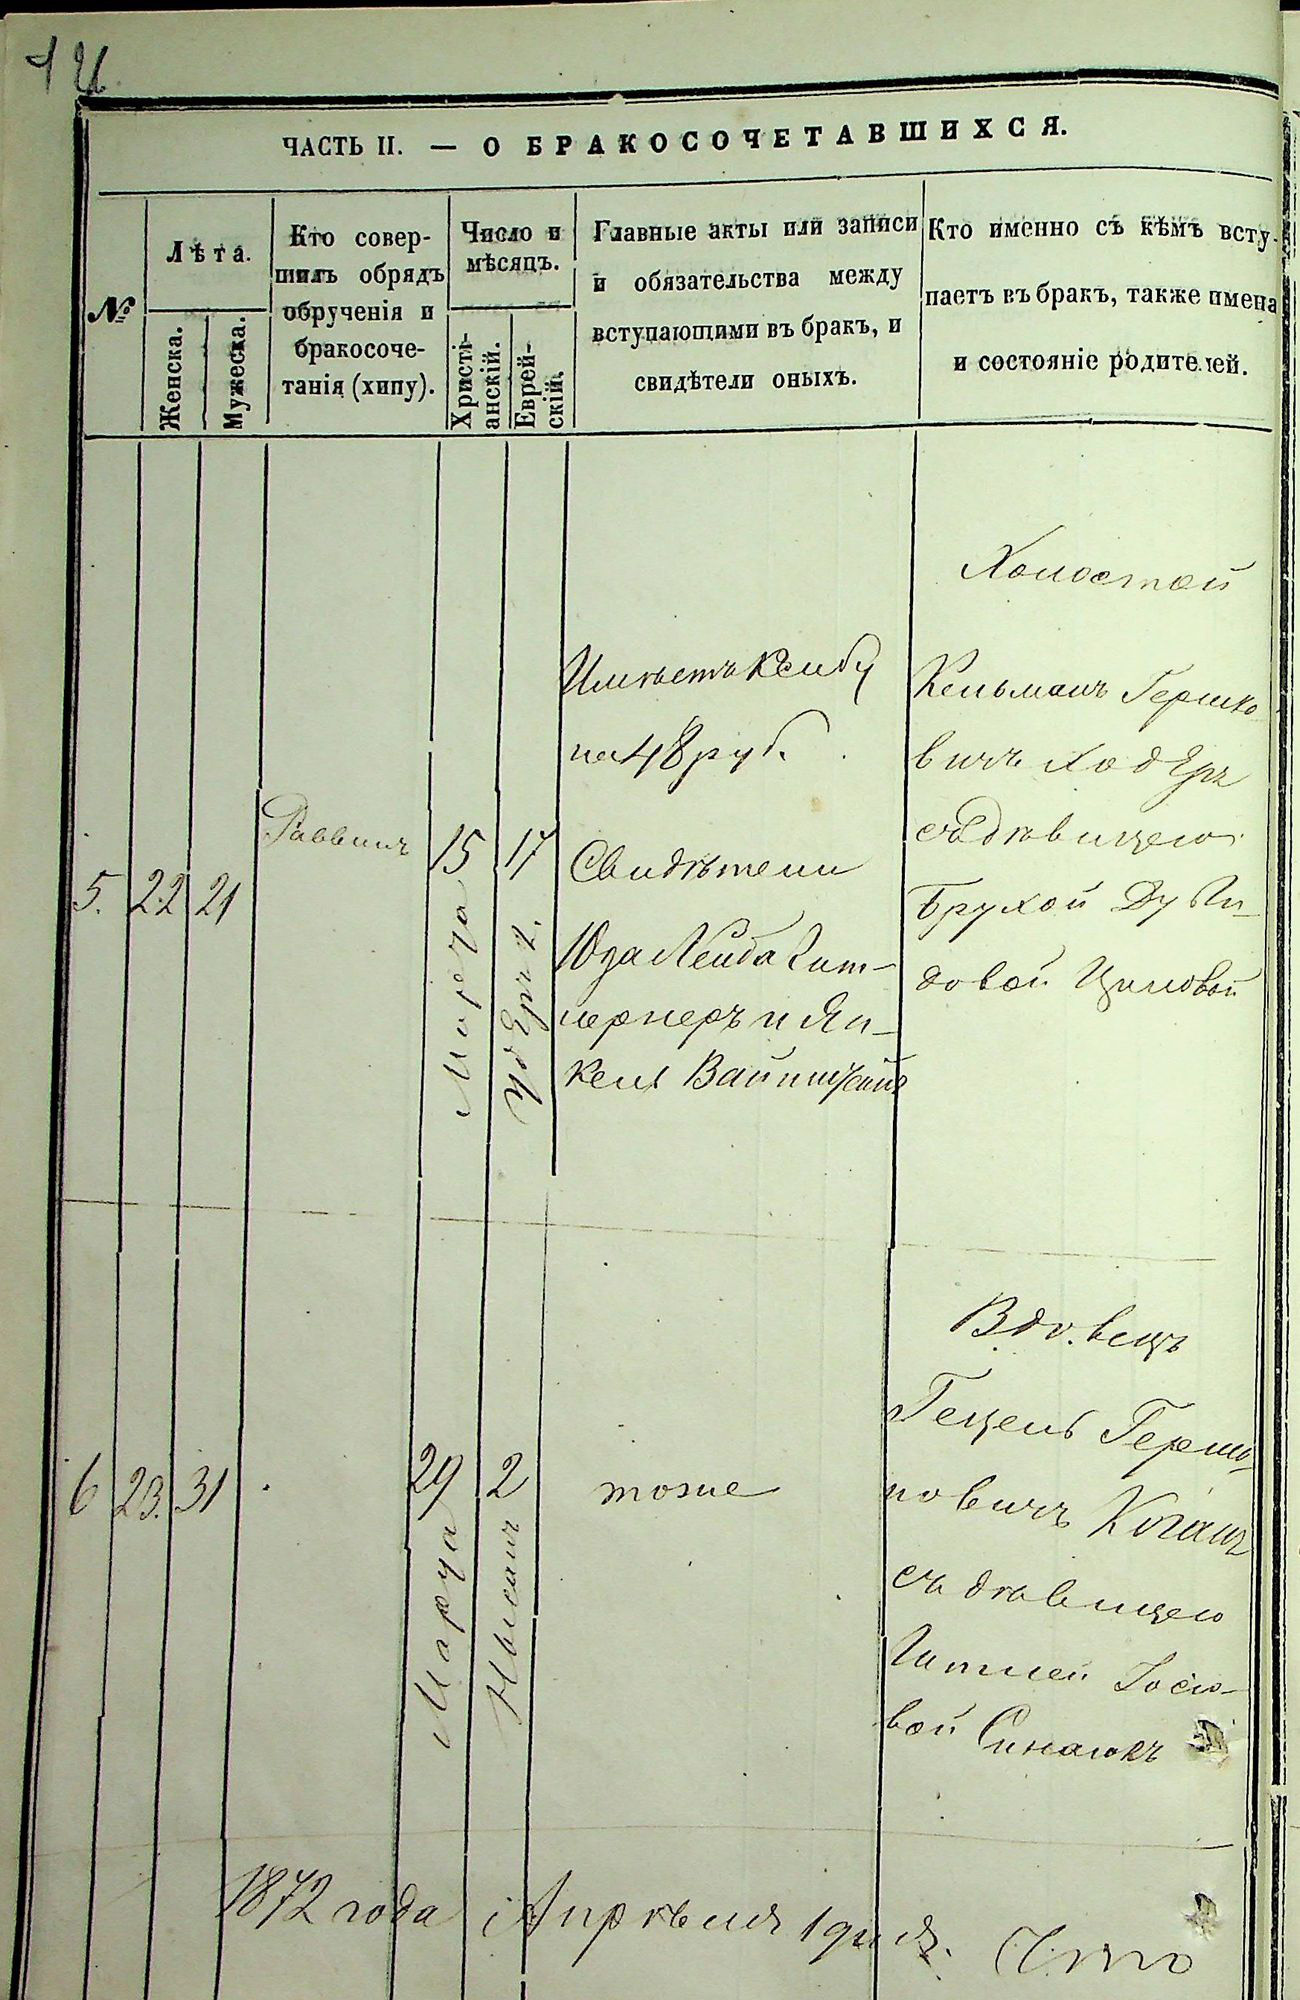 126.
ЧАСТЬ II. — О БРАКОСОЧЕТАВШИХСЯ.
№
Лѣта.
Женска.
Мужеска.
Кто совер-
шилъ обрядъ
обрученія и
бракосоче-
танія (хипу).
Число и
мѣсяцъ.
Христі-
анскій.
Еврей-
скій.
Главные акты или записи
и обязательства между
вступающими въ бракъ, и
свидѣтели оныхъ.
Кто именно съ кѣмъ всту-
паетъ въ бракъ, также имена
и состояніе родителей.
5.
22
21
Раввинъ
15
Марта
17
Имѣетъ Ксибу
на 48 руб.
Свидѣтели
Юда Лейба
и Ян-
кель
Холостой
Кельманъ Гершко
вичъ
съ дѣвицею
Брухой Ду
довой
6
23.
31
29
Марта
2
Нысанъ
тоже
Вдовецъ
Гецель Герш
ковичъ Коганъ
съ дѣвицею
Гитлей Іосіо-
вой
1872 года Апрѣля 1 дня. Что